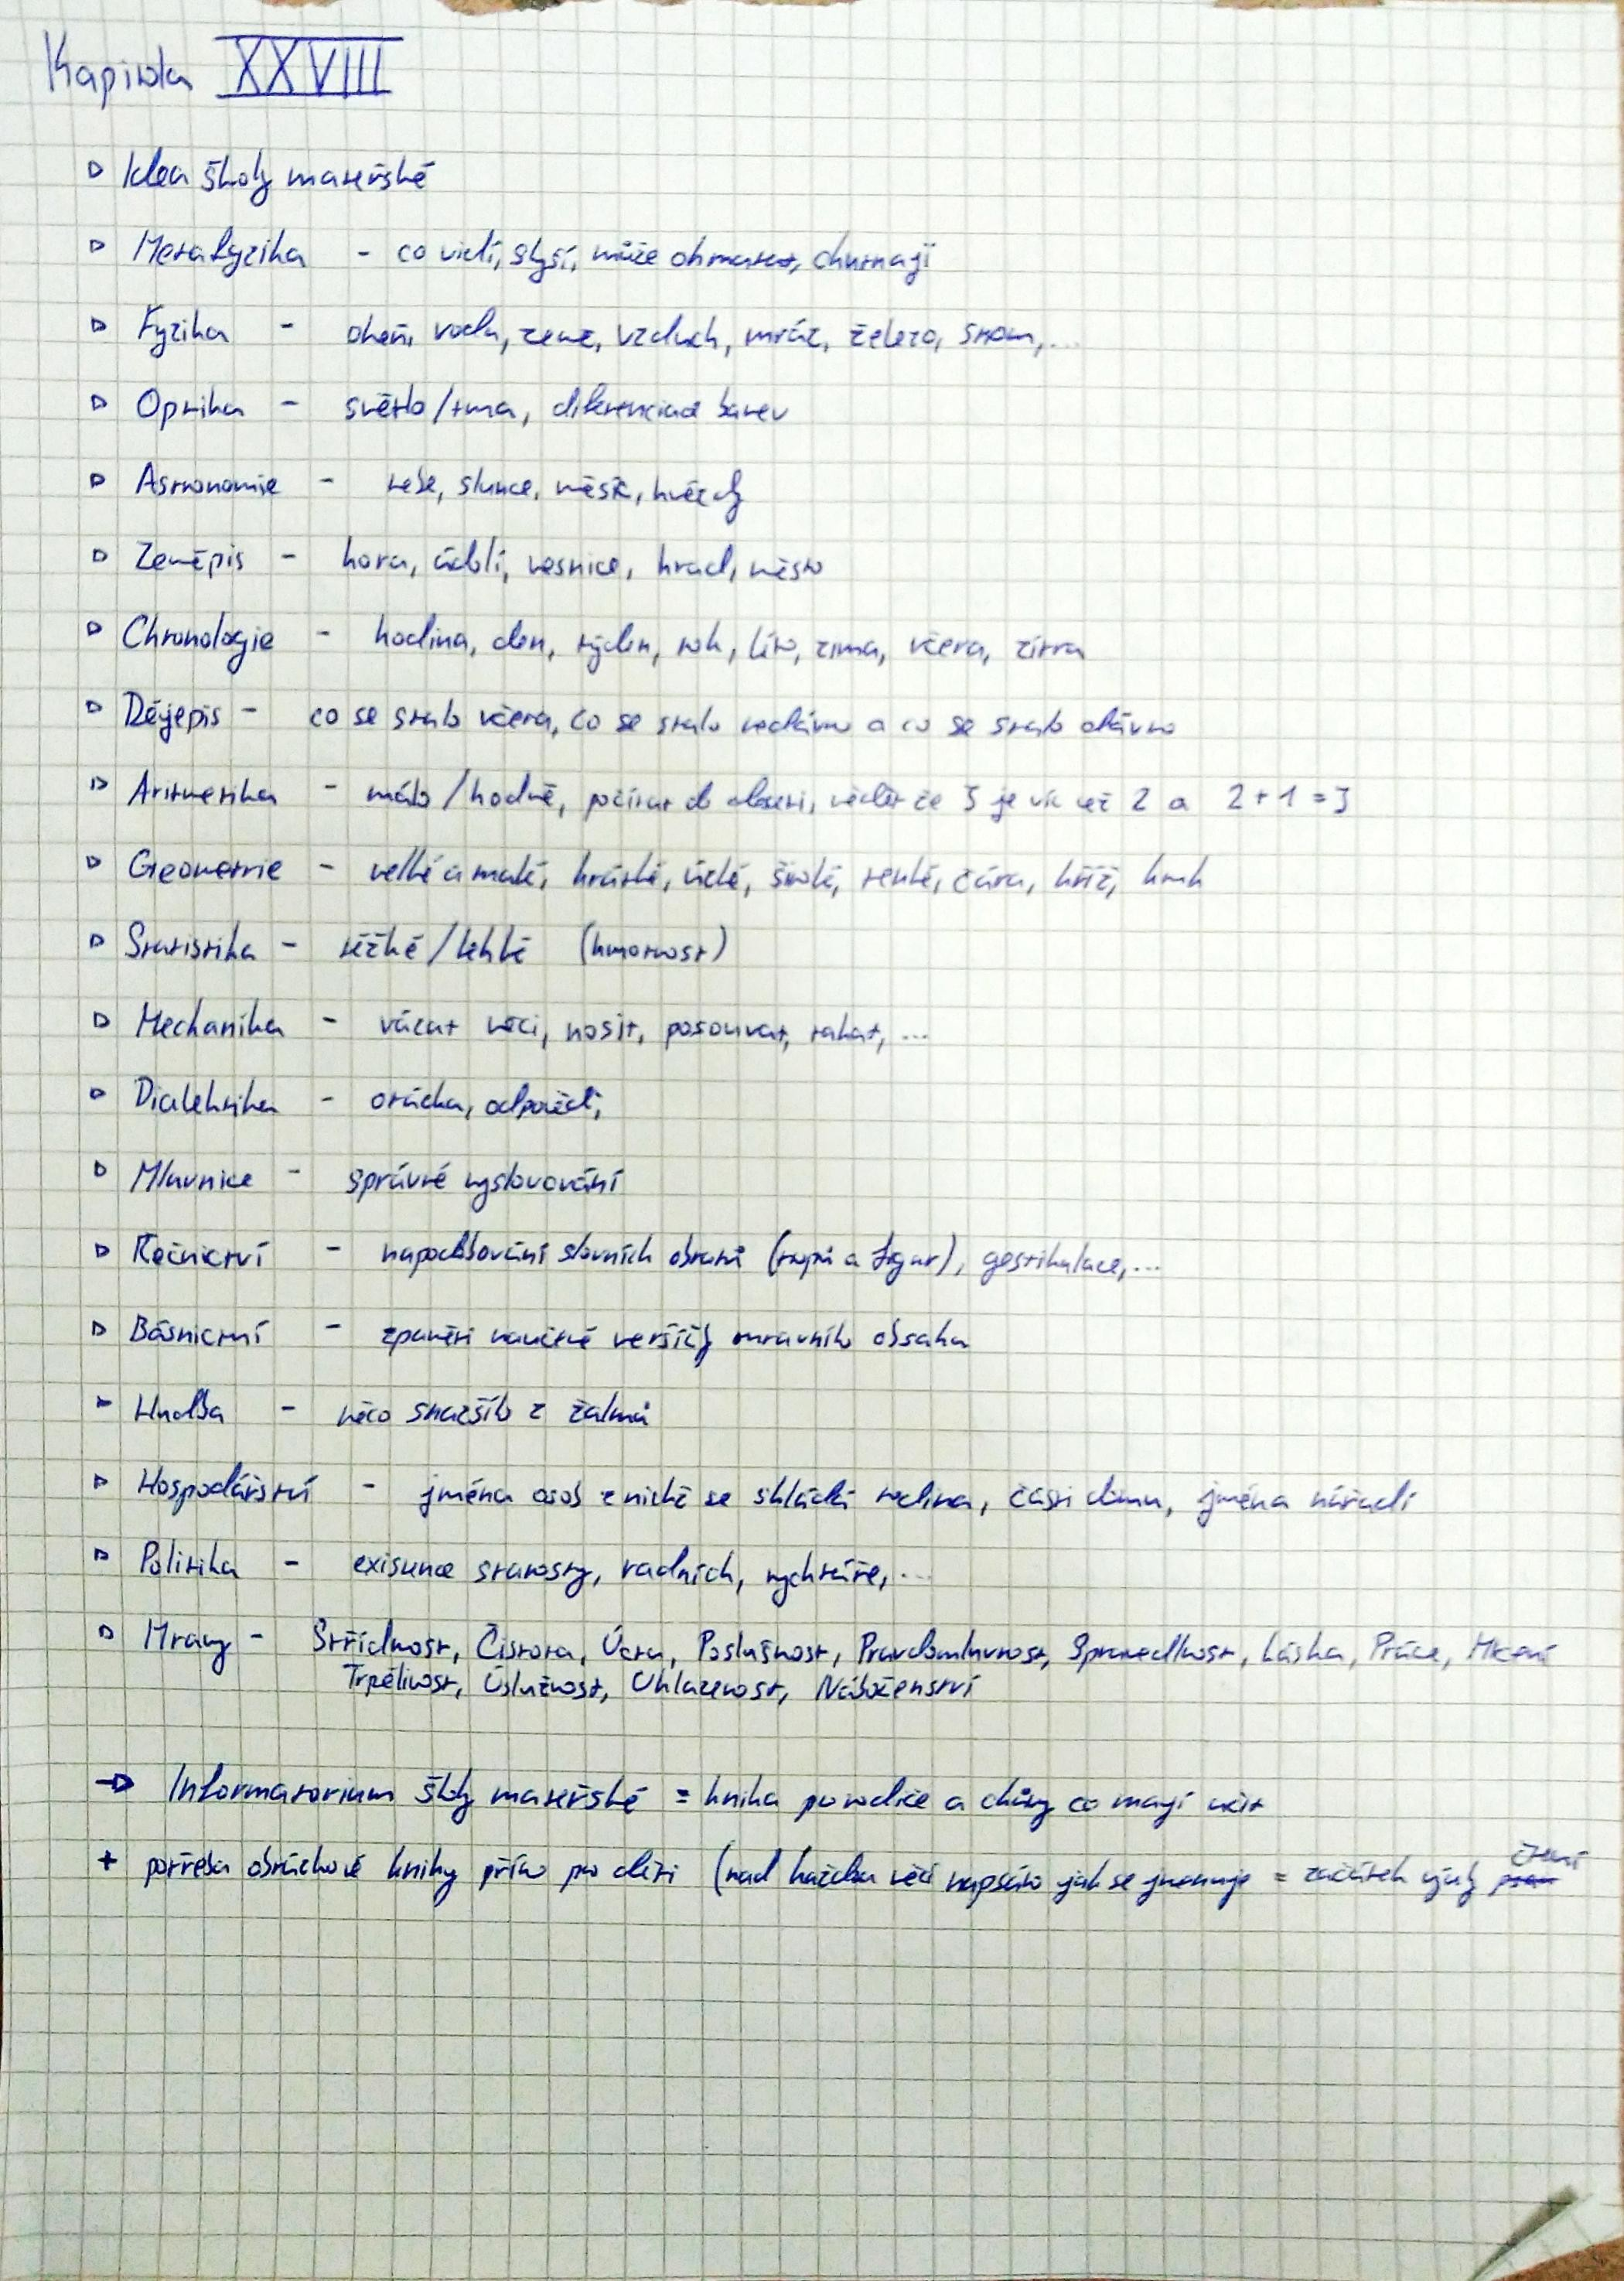 Kapitola XXVIII
▷ Idea školy mateřské
▷ Metafyzika - co vidí, slyší, může ohmatat, chutnají
▷ Fyzika - oheň, voda, země, vzduch, mráz, železo, strom,...
▷ Optika - světlo/tma, diferenciace barev
▷ Astronomie - nebe, slunce, měsíc, hvězdy
▷ Zeměpis - hora, údolí, vesnice, hrad, město
▷ Chronologie - hodina, den, týden, rok, léto, zima, včera, zítra
▷ Dějepis - co se stalo včera, co se stalo nedávno a co se stalo dávno
▷ Aritmetika - málo/hodně, počítat do deseti, vědět že 3 je víc než 2 a 2+1=3
▷ Geometrie - velké a malé, krátké, úzké, široké, tenké, čára, kříž, kruh
▷ Statistika - těžké/lehké (hmotnost)
▷ Mechanika - vázat věci, nosit, posouvat, tahat, ...
▷ Dialektika - otázka, odpověď,
▷ Mluvnice - správné vyslovování
▷ Řečnictví - napodobování slovních obratů (tropů a figur), gestikulace,...
▷ Básnictví - zpaměti naučené veršíčky mravního obsahu
▷ Hudba - něco snazšího z žalmů
▷ Hospodářství - jména osob z nichž se skládá rodina, části domu, jména nářadí
▷ Politika - existence starosty, radních, rychtáře,...
▷ Mravy - Střídmost, Čistota, Úcta, Poslušnost, Pravdomluvnost, Spravedlnost, Láska, Práce, Mlčení
Trpělivost, Úslužnost, Uhlazenost, Náboženství
→ Informatorium školy mateřské = kniha pro rodiče a chůvy co mají učit
+ potřeba obrázkové knihy přímo pro děti (nad každou věcí napsáno jak se jmenuje = začátek výuky čtení